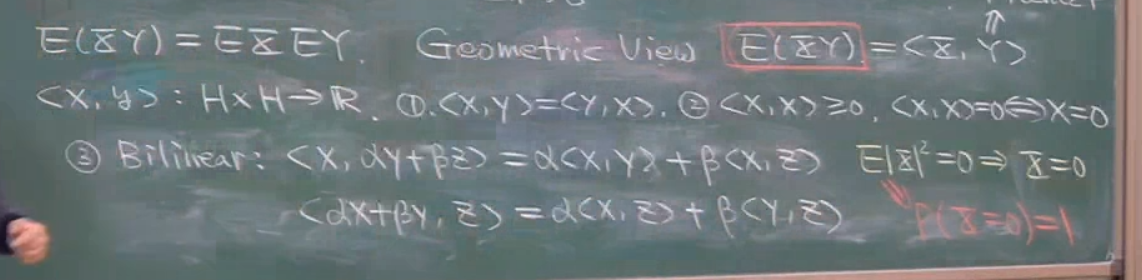 E(X̄Y) = EX̄ EY. Geometric View E(X̄Y) = <X̄, Y>
⇑
<x, y> : H×H→ℝ. ①. <x,y>=<y,x>. ② <x,x>≥0, <x,x>=0⇔x=0
③ Bilinear: <x, αy+βz> = α<x,y> + β<x,z> E|X̄|²=0 ⇒ X̄=0
<αx+βy, z> = α<x,z> + β<y,z> P(X̄=0)=1